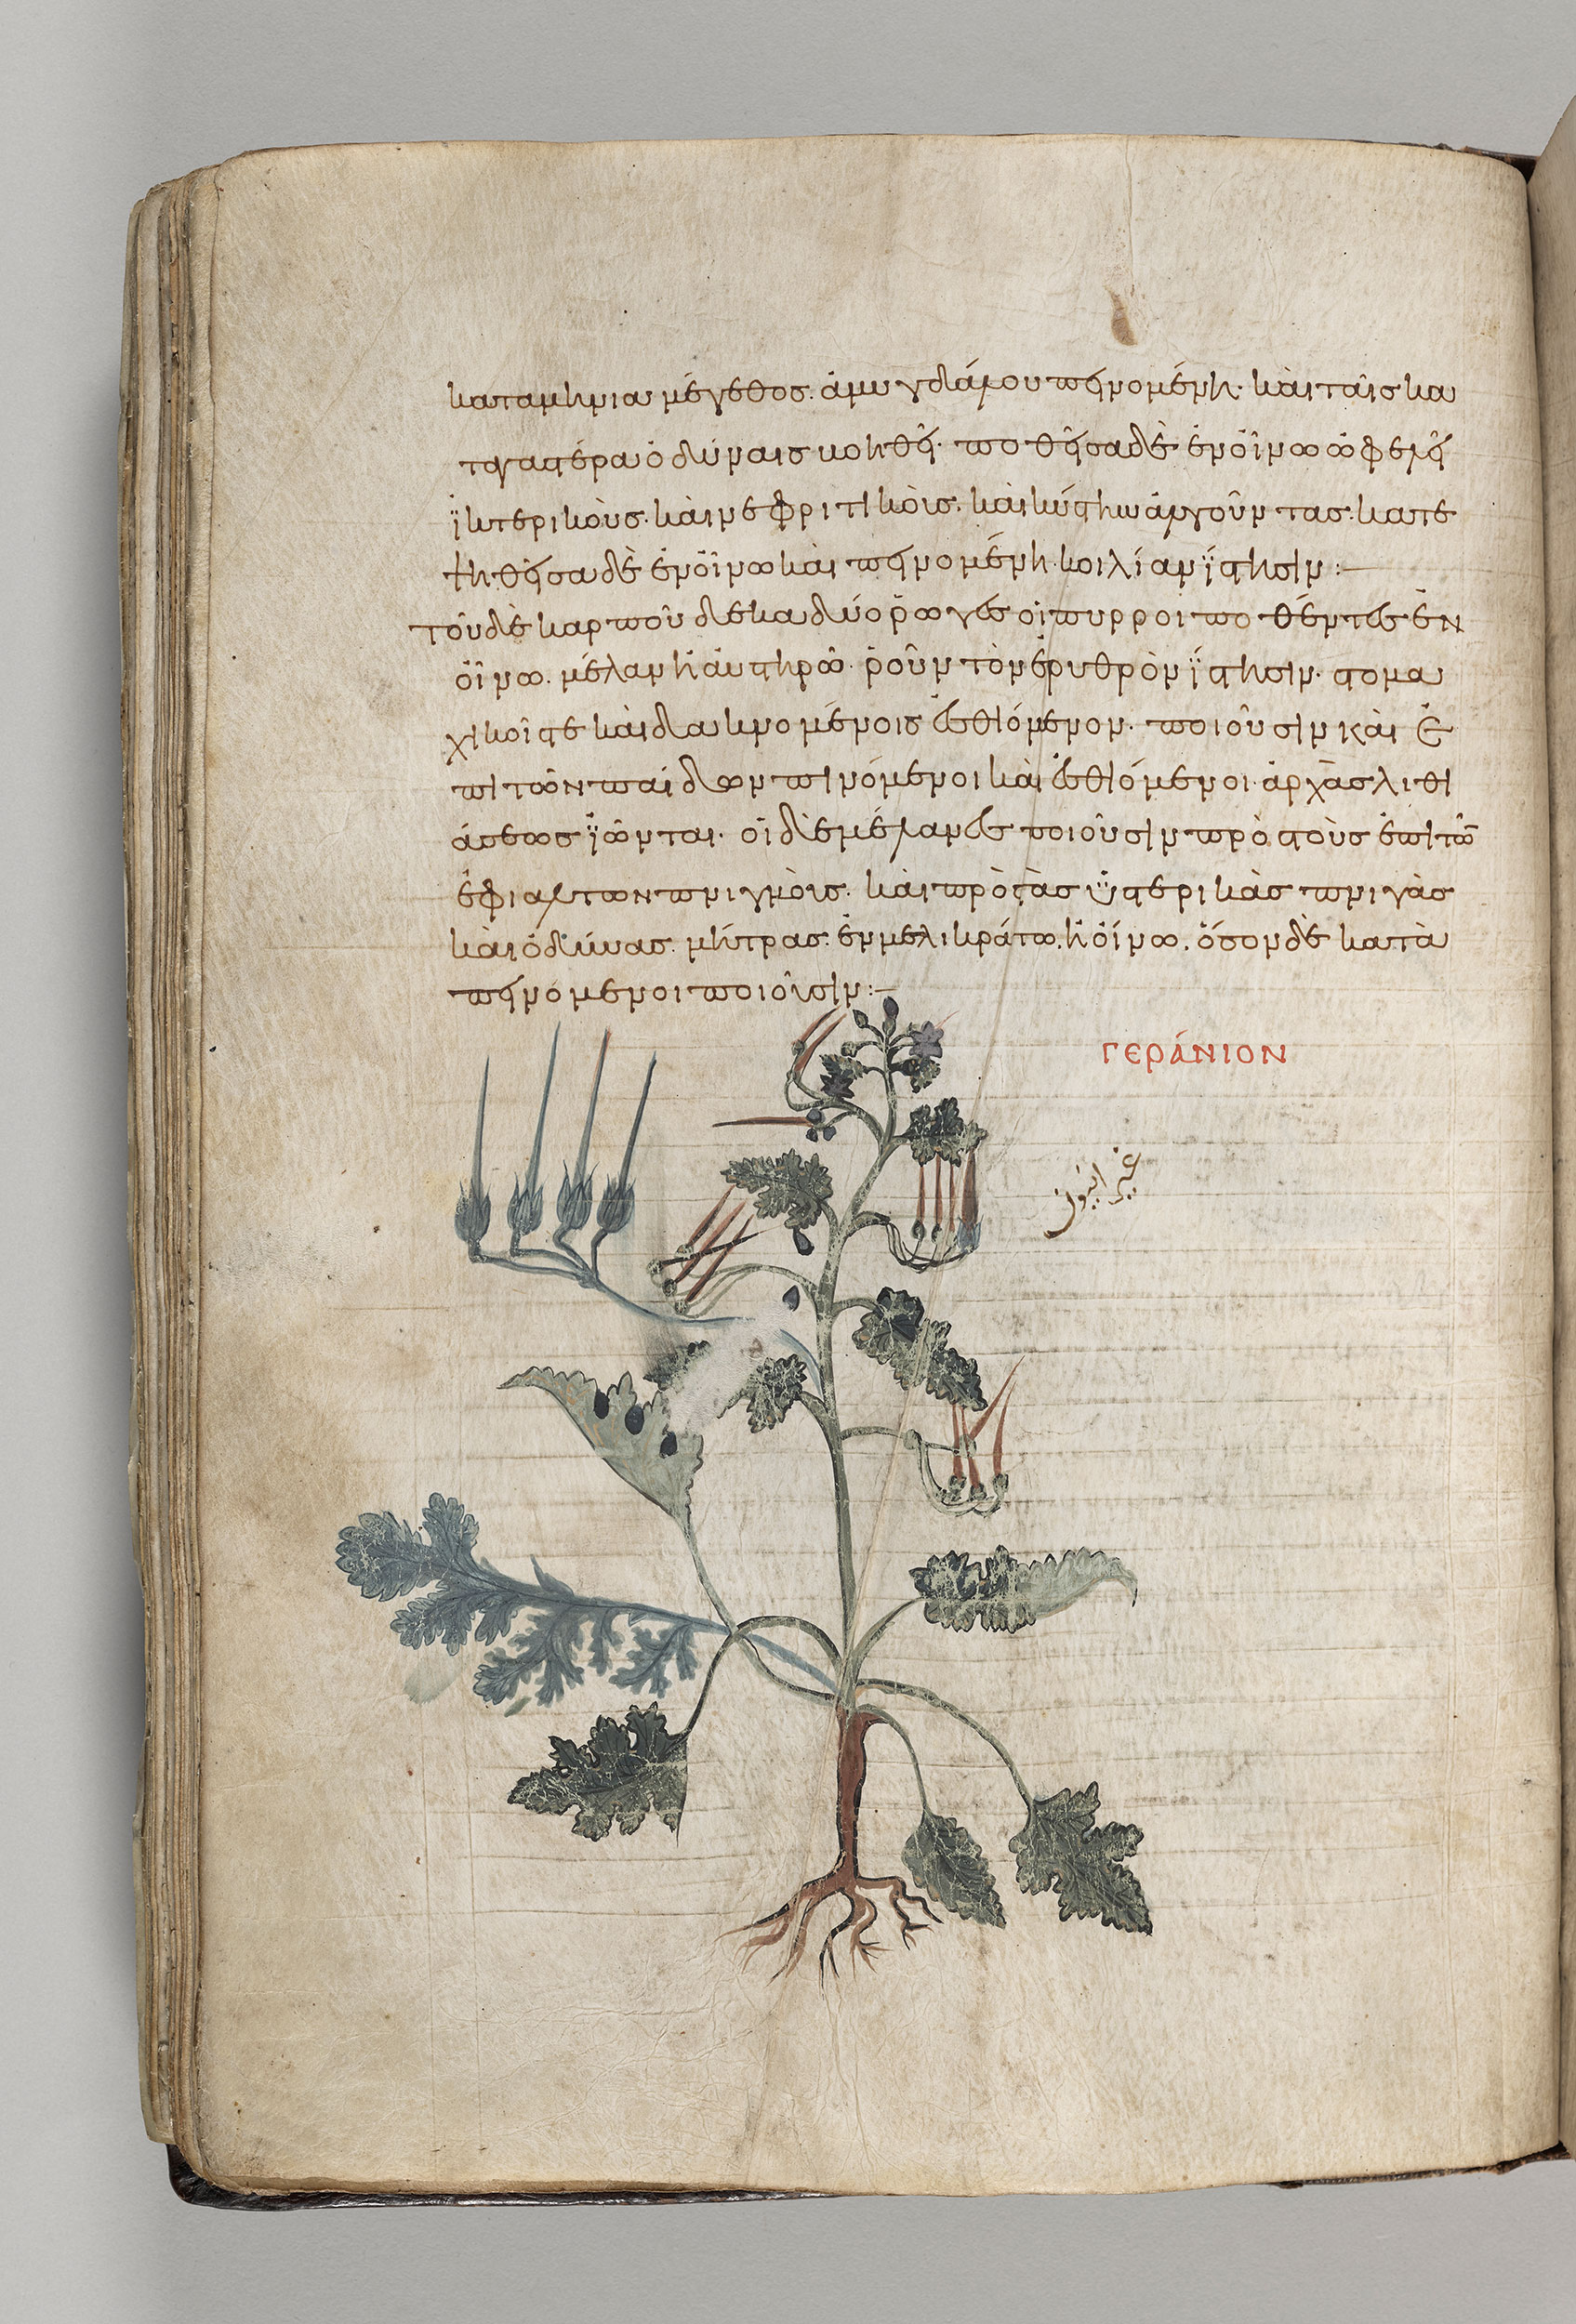 καταμηνια μέγεθος. ἀμυγδάλου πινομένη. καὶ ταῖς κα
τα γαστέρα ὀδύναις βοηθεῖ. ποθεῖσα δὲ ἐν οἴνω ὠφελεῖ
ϊκτερικοὺς. καὶ νεφριτικοὺς. καὶ κύστην ἀλγοῦντας. καὶ
θεῖσα δὲ ἐν οἴνω καὶ πινομένη. κοιλίαν ϊστησιν :—
τοῦ δὲ καρποῦ δεκαδύο ῥῶγες οἱ πυρροι ποθέντες ἐν
οἴνω. μέλανι αὐστηρῶ. ῥοῦν τὸν ἐρυθρὸν ϊστησιν. στομα
χικοῖς τε καὶ δακνομένοις ἐσθιόμενον. ποιοῦσιν καὶ ἐ
πι τῶν παίδων πινόμενοι καὶ ἐσθιόμενοι. ἀρχὰς λιθι
άσεως ϊῶνται. οἱ δὲ μέλανες ποιοῦσιν πρὸς τοὺς ἐπι τῶ
ἐφιαλτων πνιγμοὺς. καὶ πρὸς τὰς ϋστερικὰς πνιγὰς
καὶ ὀδύνας. μήτρας. ἐν μελικράτω. ἢ οἴνω. ὅσον δὲ κατὰ
πινόμενοι ποιοῦσιν :—
ΓΕΡΆΝΙΟΝ
غيرانيون